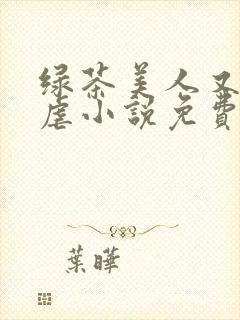 绿茶美人又
虐小說免費
葉曄